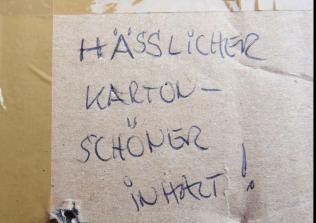 HÄSSLICHER
KARTON-
SCHÖNER
INHALT!